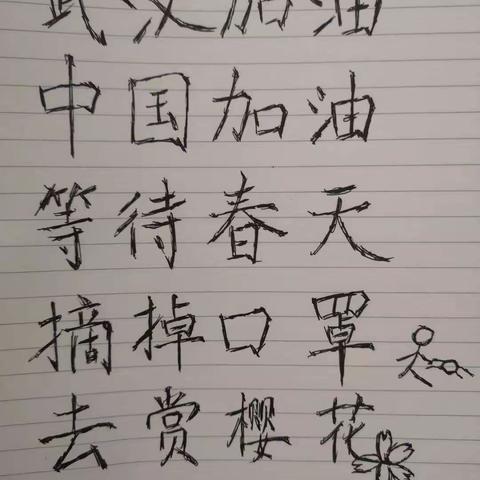 武汉加油
中国加油
等待春天
摘掉口罩
去赏樱花